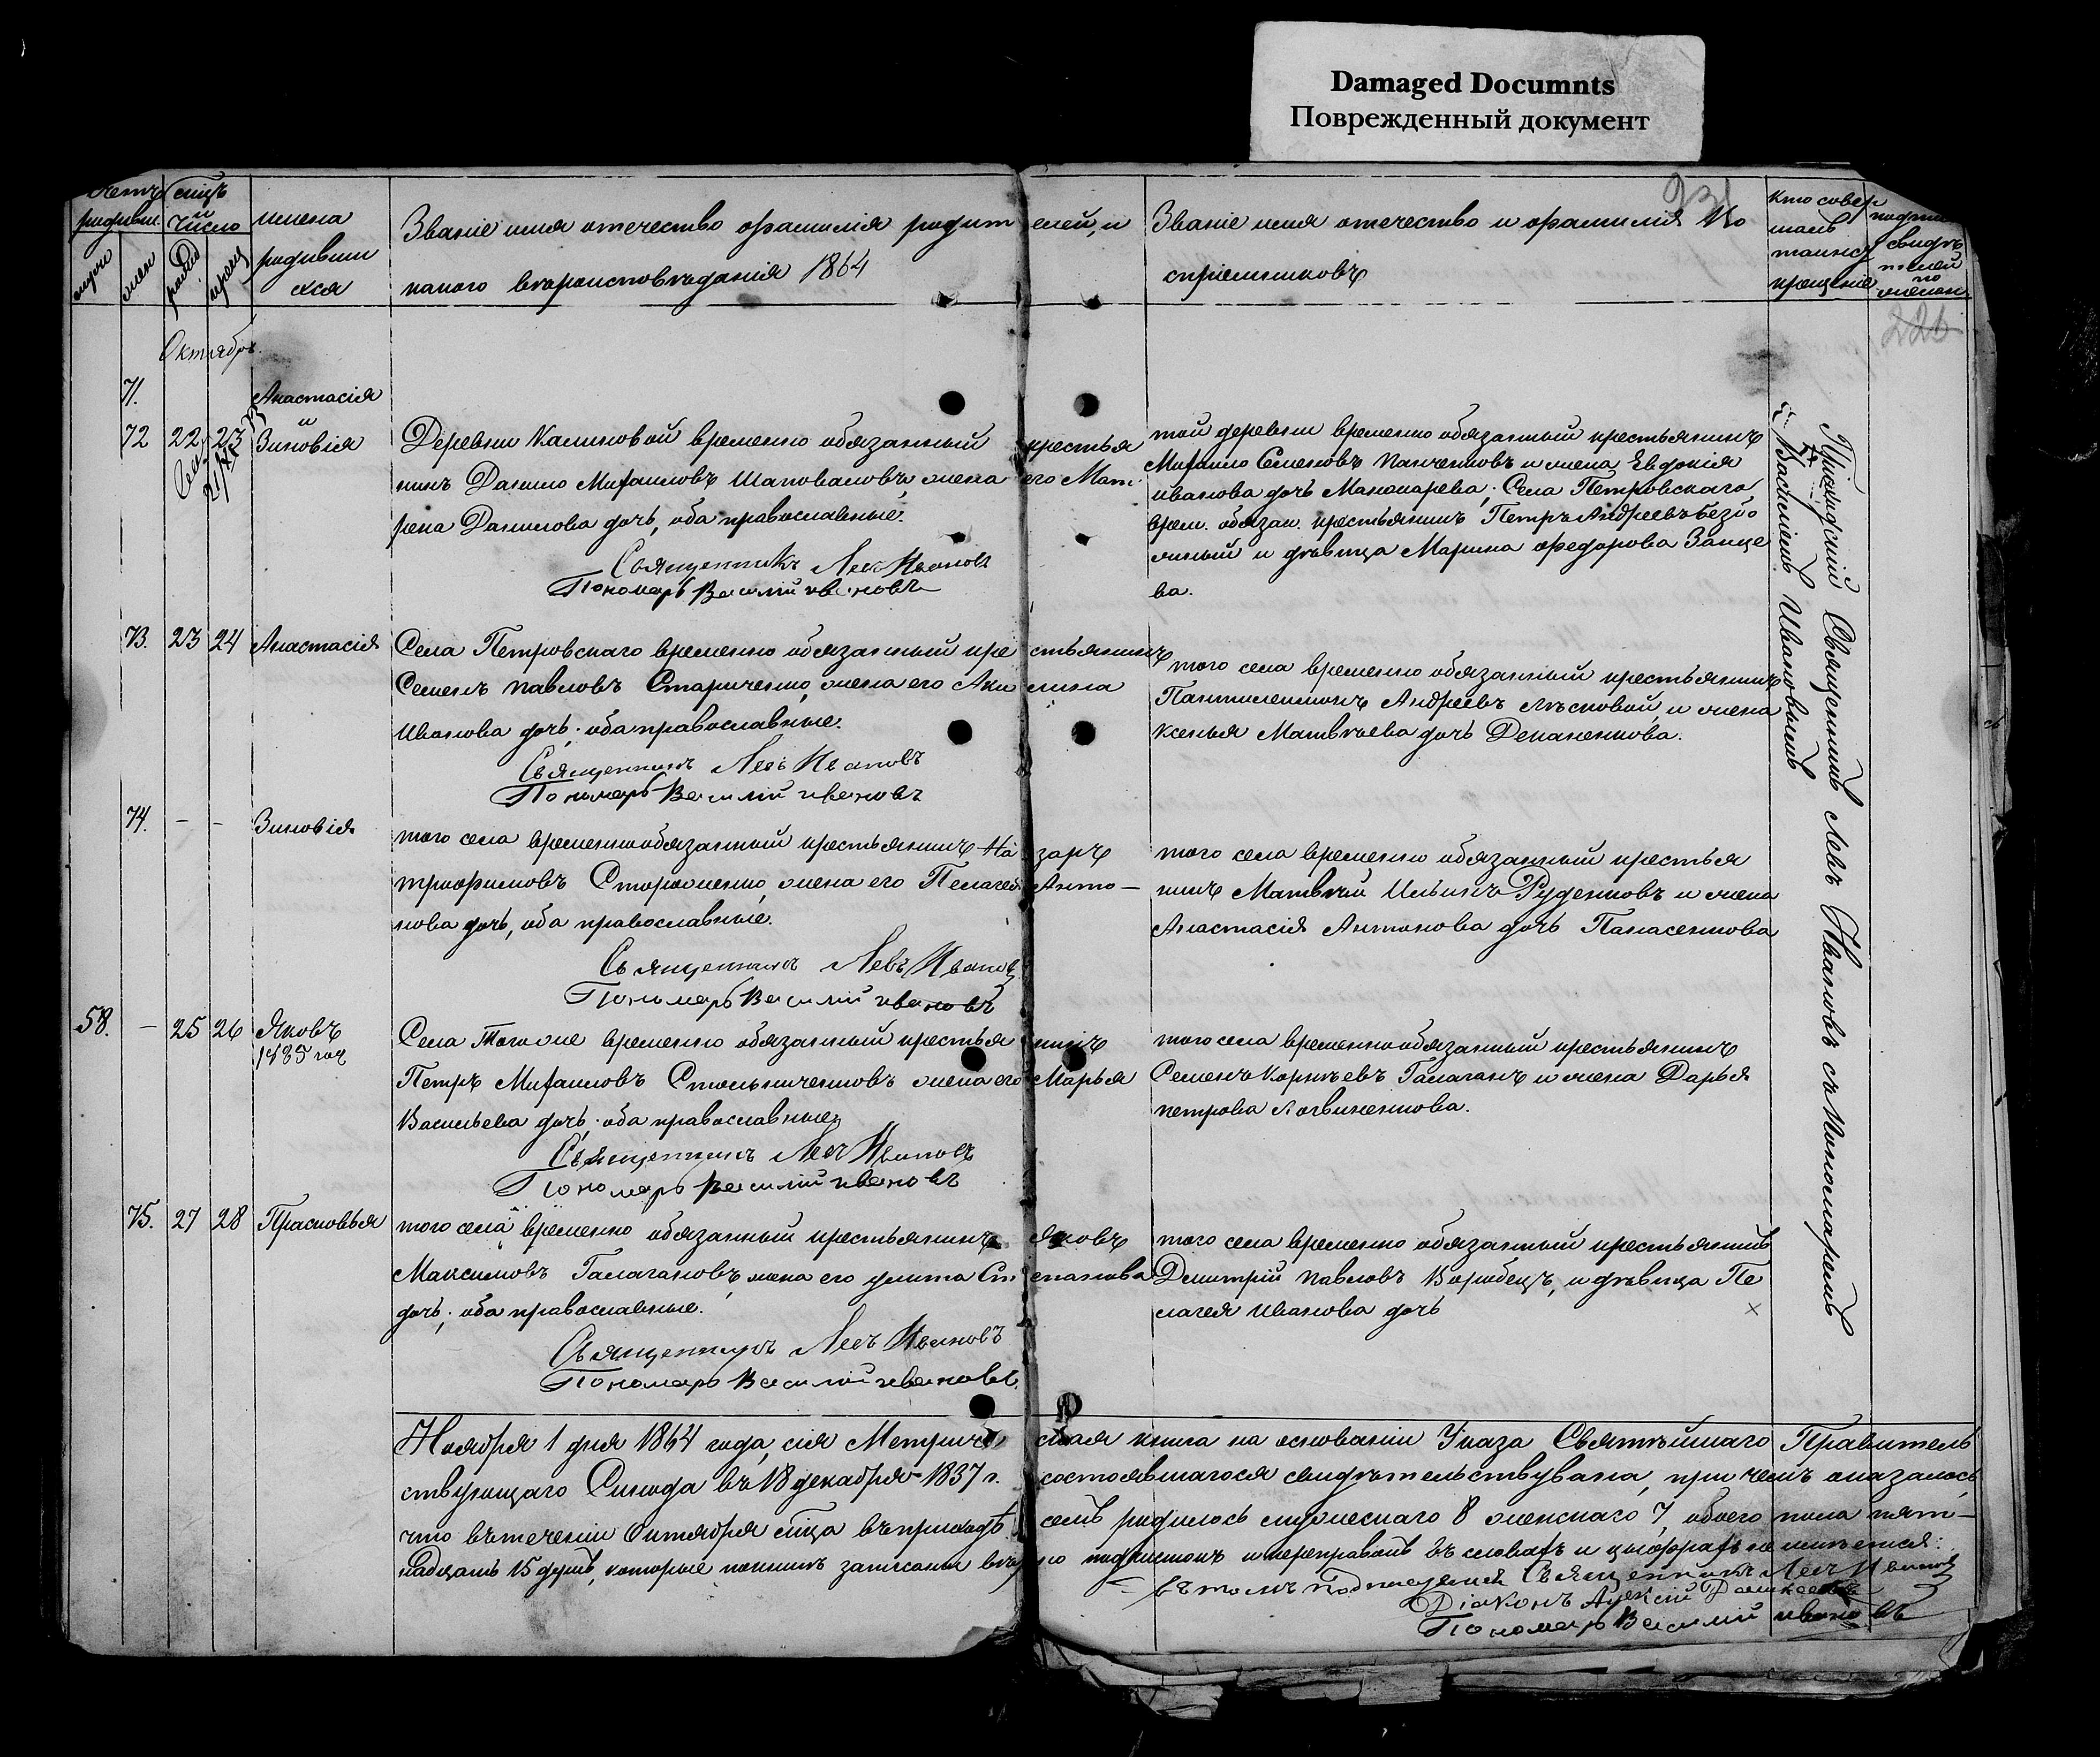 Damaged Documnts
Поврежденный документ
931
родивш. число имена
Званіе имя отечество фамилія родит елей, и
Званіе имя отечество и фамилія Во
кто совер
шалъ
таинст
крещенія
свидѣ
телей
по
желан.
родивши
хся
какого вѣроисповѣданія 1864
спріемниковъ
226
Октябрь
71. Анастасія
и
72 22 23 Зиновія
Деревни Калиновой временно обязанный крестья
нинъ Данило Михаиловъ Шаповаловъ, жена его Мат
рена Данилова дочь, оба православные.
Священникъ Левъ Ивановъ
Пономарь Василій Ивановъ
той деревни временно обязанный крестьянинъ
Михаило Семеновъ Панченковъ и жена Евдокія
Иванова дочь; Села Петровскаго
врем. обязан. крестьянинъ Петръ Андреевъ
и дѣвица Марина Федорова Зайце
ва.
73. 23 24 Анастасія
Села Петровскаго временно обязанный кре стьянинъ
Семенъ Павловъ Стариченко, жена его Аки лина
Иванова дочь; оба православные.
Священникъ Левъ Ивановъ
Пономарь Василій Ивановъ
того села временно обязанный крестьянинъ
Пантилеимонъ Андреевъ Лѣсковой, и жена
Ксенья Матвѣева дочь
74. - - Зиновія
того села временно обязанный крестьянинъ На заръ
Трофимовъ Стороженко, жена его Пелагея Анто-
нова дочь, оба православные.
Священникъ Левъ Ивановъ
Пономарь Василій Ивановъ
того села временно обязанный крестья
нинъ Матвѣй Ильинъ Руденковъ и жена
Анастасія Антонова дочь Панасенкова
58. - 25 26 Яковъ
Села Того же временно обязанный крестья нинъ
Петръ Михаиловъ Стольниченковъ жена его Марья
Васильева дочь; оба православные
Священникъ Левъ Ивановъ
Пономарь Василій Ивановъ
того села временно обязанный крестьянинъ
Семенъ Корнѣевъ Галаганъ и жена Дарья
Петрова Логвиненкова.
75. 27 28 Прасковья
того села временно обязанный крестьянинъ Яковъ
Максимовъ Галагановъ, жена его Улита Ст епанова
дочь; оба православные.
Священникъ Левъ Ивановъ
Пономарь Василій Ивановъ
того села временно обязанный крестьянинъ
Дмитрій Павловъ Воробецъ, и дѣвица Пе
лагея Иванова дочь
Приходскій Священникъ Левъ Ивановъ съ Пономаремъ
Василіемъ Ивановымъ
Ноября 1 дня 1864 года, сія Метриче ская книга на основаніи Указа Святѣйшаго Правитель
ствующаго Синода въ 18 декабря 1837 г. состоявшагося свидѣтельствувана, при чемъ оказалось,
что въ теченіи Октября мѣсца въ приходѣ семъ родилось мужескаго 8 женскаго 7, обоего пола пят-
надцать 15 душъ, которые записаны вѣр но подчистокъ и переправокъ въ словахъ и цыфрахъ не имѣется:
въ томъ подписуемся Священникъ Левъ Ивановъ
Діаконъ Алексій
Пономарь Василій Ивановъ